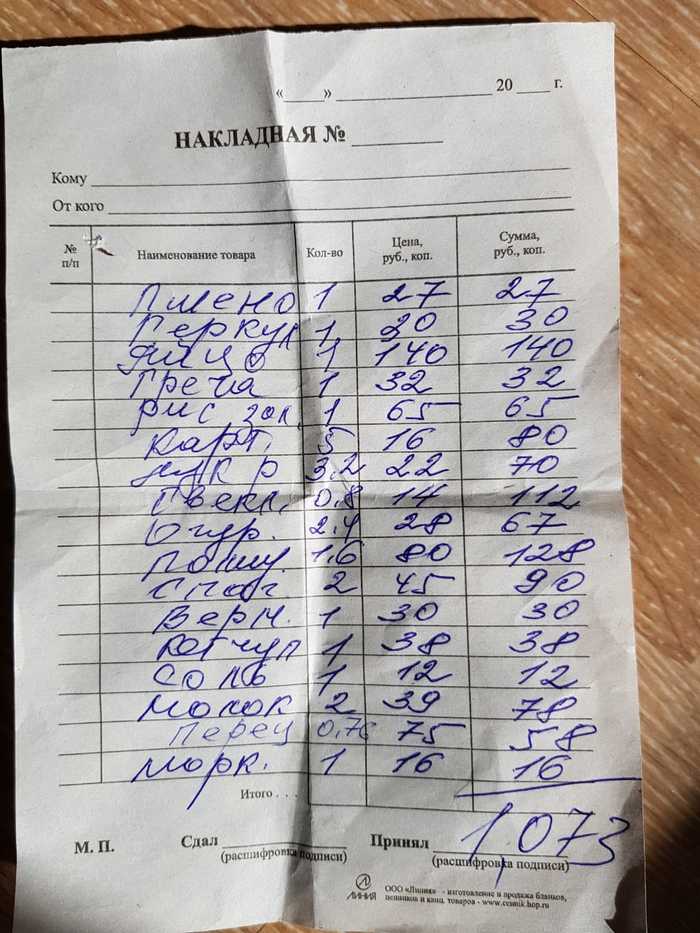 « ____ » ____________ 20 ___ г.
НАКЛАДНАЯ № ________
Кому ____________
От кого ____________
№ п/п Наименование товара Кол-во Цена, руб., коп. Сумма, руб., коп.
Пшено 1 27 27
Геркул 1 20 30
Яйцо 1 140 140
Греча 1 32 32
Рис 1 65 65
Карт. 5 16 80
3,2 22 70
Свекл. 0,8 14 112
Огур. 2,4 28 67
Поми. 1,6 80 128
Спаг 2 45 90
Верм. 1 30 30
Кетчуп 1 38 38
Соль 1 12 12
Молок 2 39 78
Перец 0,76 75 58
Морк. 1 16 16
Итого . . .
1,073
М. П. Сдал ____________ Принял ____________
(расшифровка подписи) (расшифровка подписи)
ЛИНИЯ ООО «Линия» - изготовление и продажа бланков,
ценников и канц. товаров -